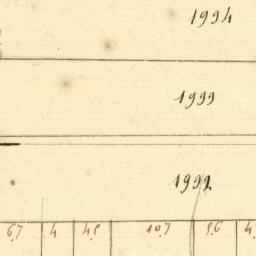 1994
1999
1992
67 4 4,8 107 5,6 4,